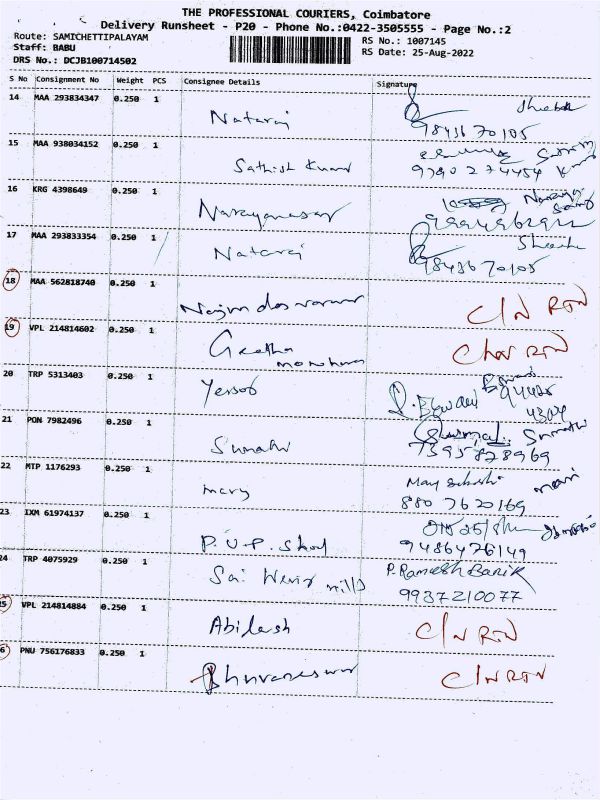 THE PROFESSIONAL COURIERS, Coimbatore
Delivery Runsheet - P20 - Phone No.:0422-3505555 - Page No.:2
Route: SAMICHETTIPALAYAM
Staff: BABU
DRS No.: DCJB100714502
RS No.: 1007145
RS Date: 25-Aug-2022
S No Consignment No Weight PCS Consignee Details Signature
14 MAA 293834347 0.250 1 Nataraj
9843670105
15 MAA 938034152 0.250 1 Sathish Kumar
9790274454
16 KRG 4398649 0.250 1 Narayanasar
17 MAA 293833354 0.250 1 Nataraj
9843670105
18 MAA 562818740 0.250 1 C/N RTN
19 VPL 214814602 0.250 1 Geetha RTN
manohara
20 TRP 5313403 0.250 1
94425
4304
21 PON 7982496 0.250 1 Sumathi Sumathi
7395828969
22 MTP 1176293 0.250 1 mary
8807620169
23 IXM 61974137 0.250 1 P.V.P.
9486476149
24 TRP 4075929 0.250 1 Sai mills P.Ramesh Barik
9937210077
25 VPL 214814884 0.250 1 Abilash C/N RTN
6 PNU 756176833 0.250 1 Bhuvaneswar C/N RTN